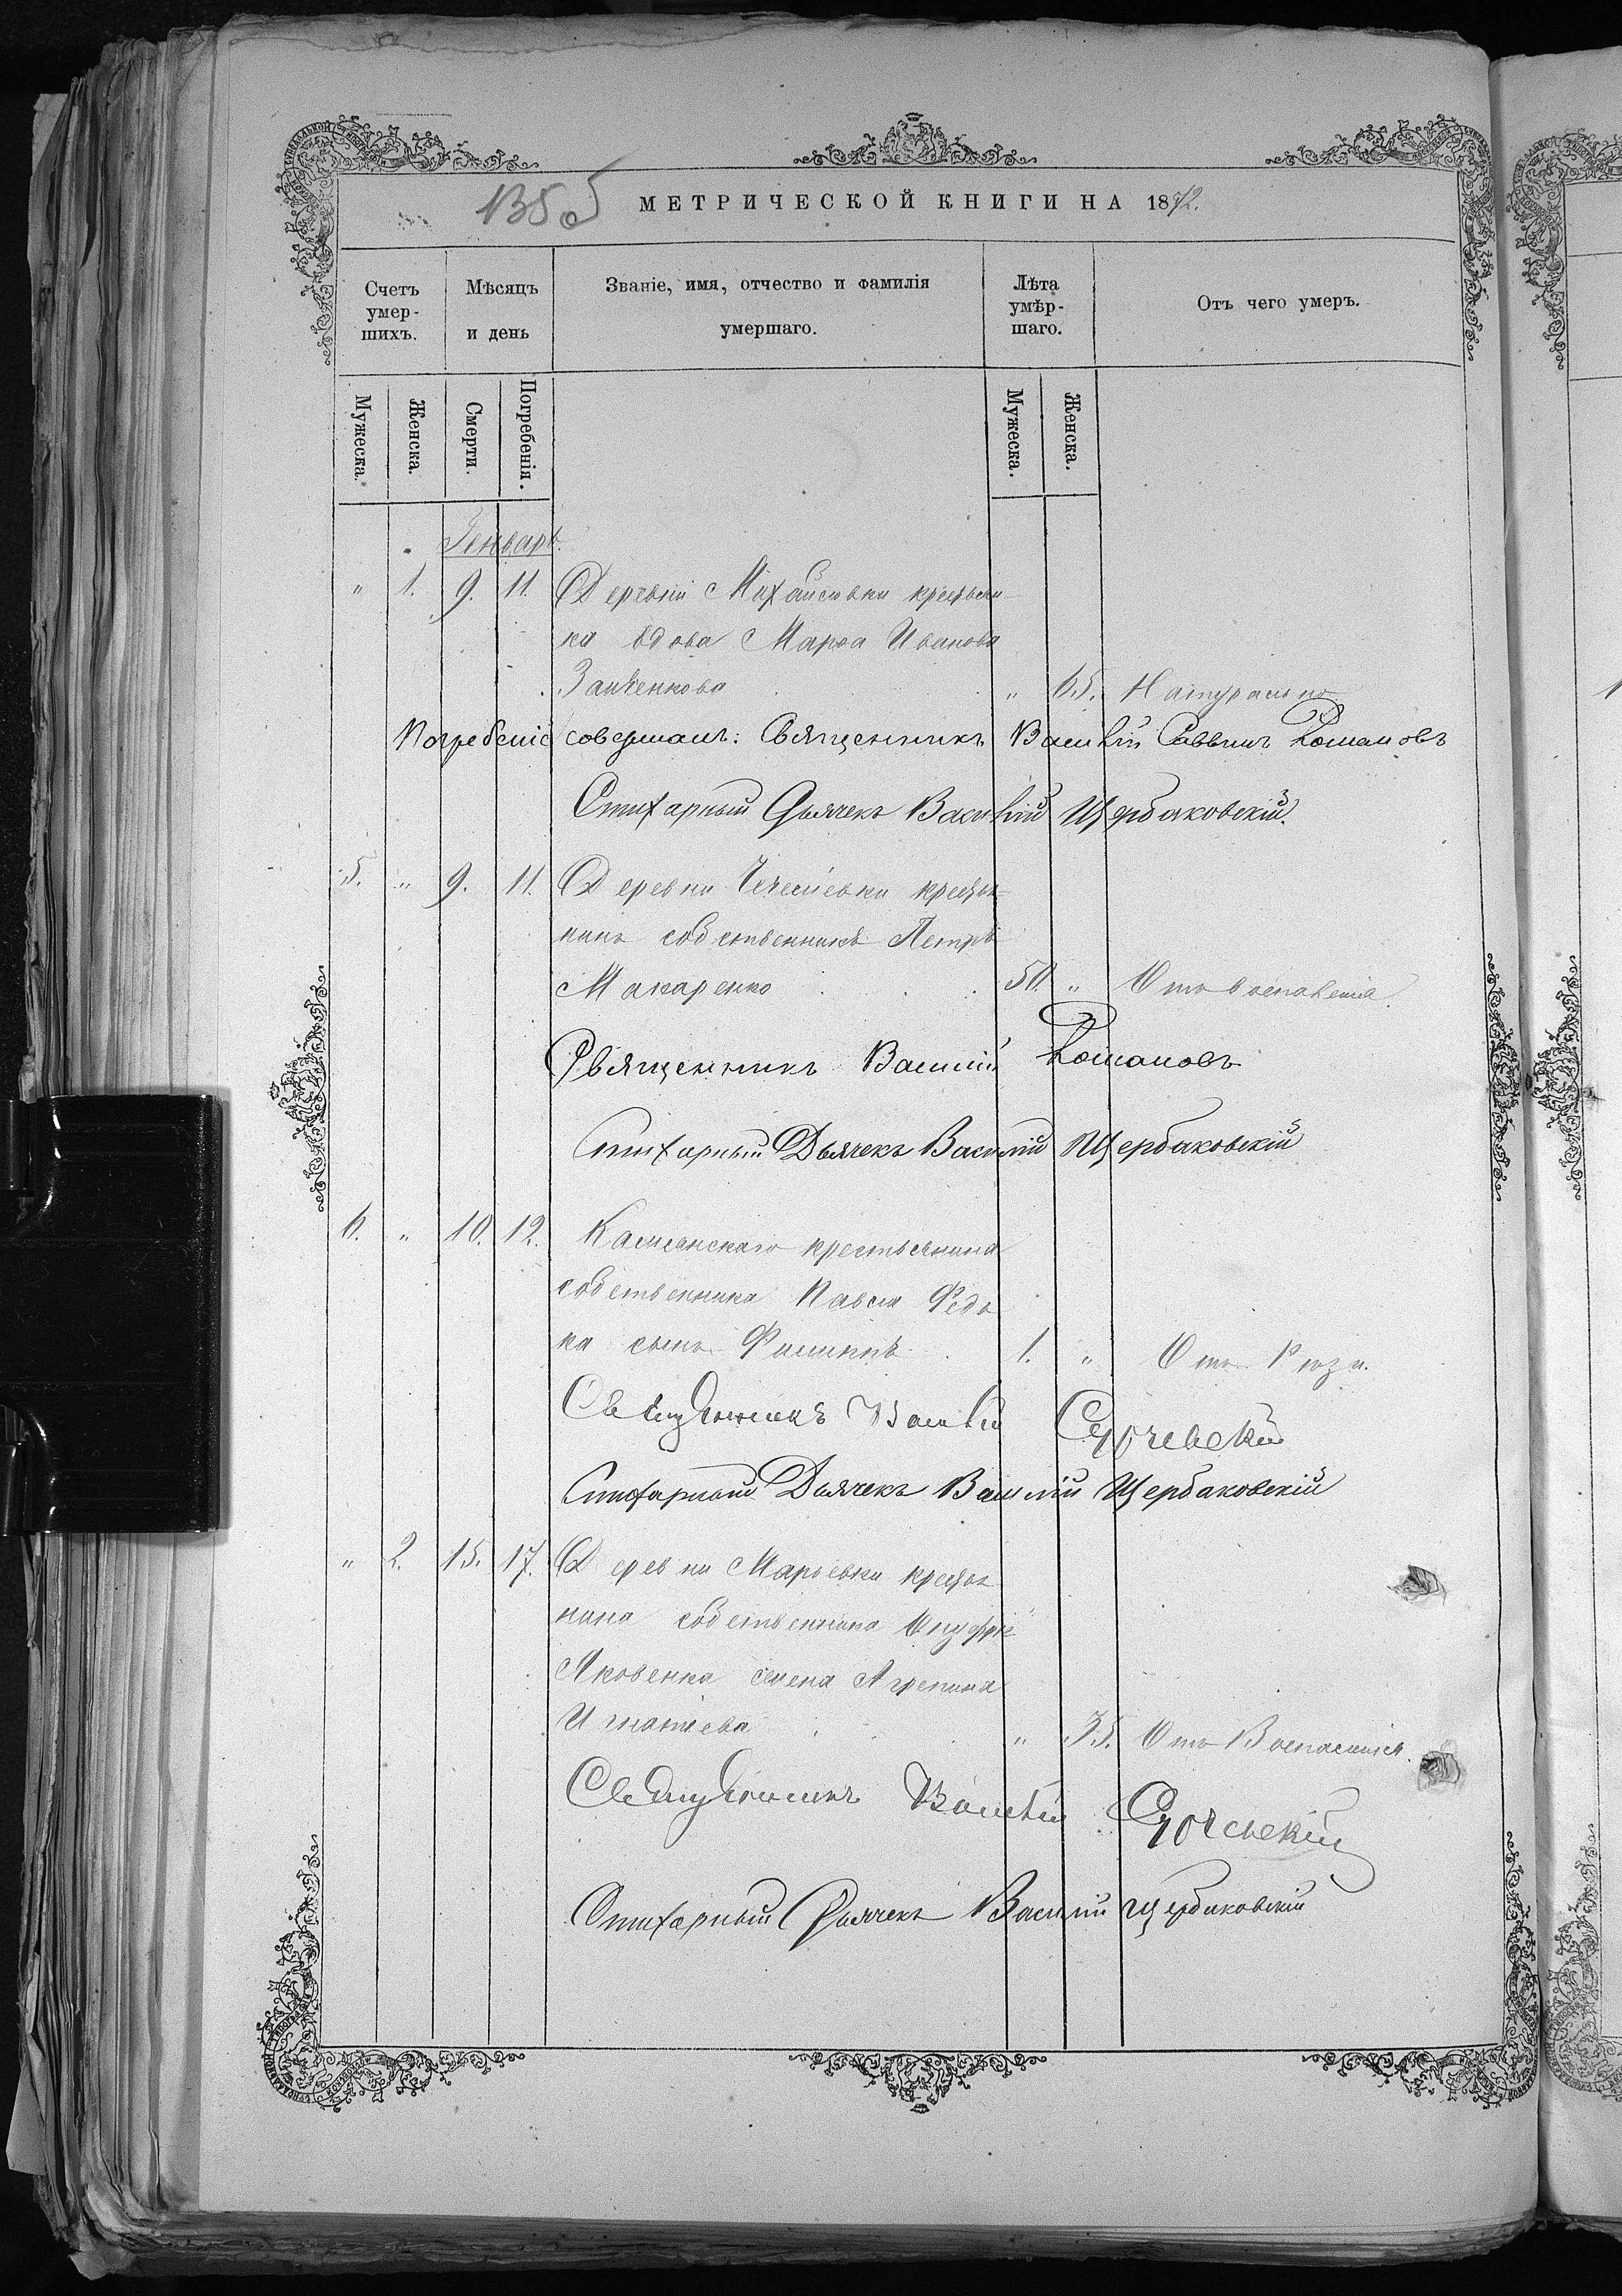 МЕТРИЧЕСКОЙ КНИГИ НА 1872.
Счетъ умер-шихъ.
Мѣсяцъ и день
Званіе, имя, отчество и фамилія умершаго.
Лѣта умѣр-шаго.
Отъ чего умеръ.
Мужеска.
Женска.
Смерти.
Погребенія.
Мужеска.
Женска.
Генварь.
" 1. 9. 11. Деревни Михайловки крестьян-
ка вдова Марѳа Иванова
" 65. Натурально
Погребеніе совершалъ: Священникъ Василій Саввинъ Романовъ
Стихарный Дьячекъ Василій Щербаковскій.
5. " 9. 11. Деревни крестья-
нинъ собственникъ Петръ
Макаренко 50. " Отъ воспаленія.
Священникъ Василій Романовъ
Стихарный Дьячекъ Василій Щербаковскій
6. " 10. 12. Каменскаго крестьянина
собственника Павла Федь-
ка сынъ Филиппъ 1. " Отъ Рожи.
Священникъ Василій
Стихарный Дьячекъ Василій Щербаковскій
" 2. 15. 17. Деревни Марьевки крестья-
нина собственника Онуфрія
Яковенка жена Агрепина
Игнатіева " 35. Отъ Воспаленія.
Священникъ Василій
Стихарный Дьячекъ Василій Щербаковскій